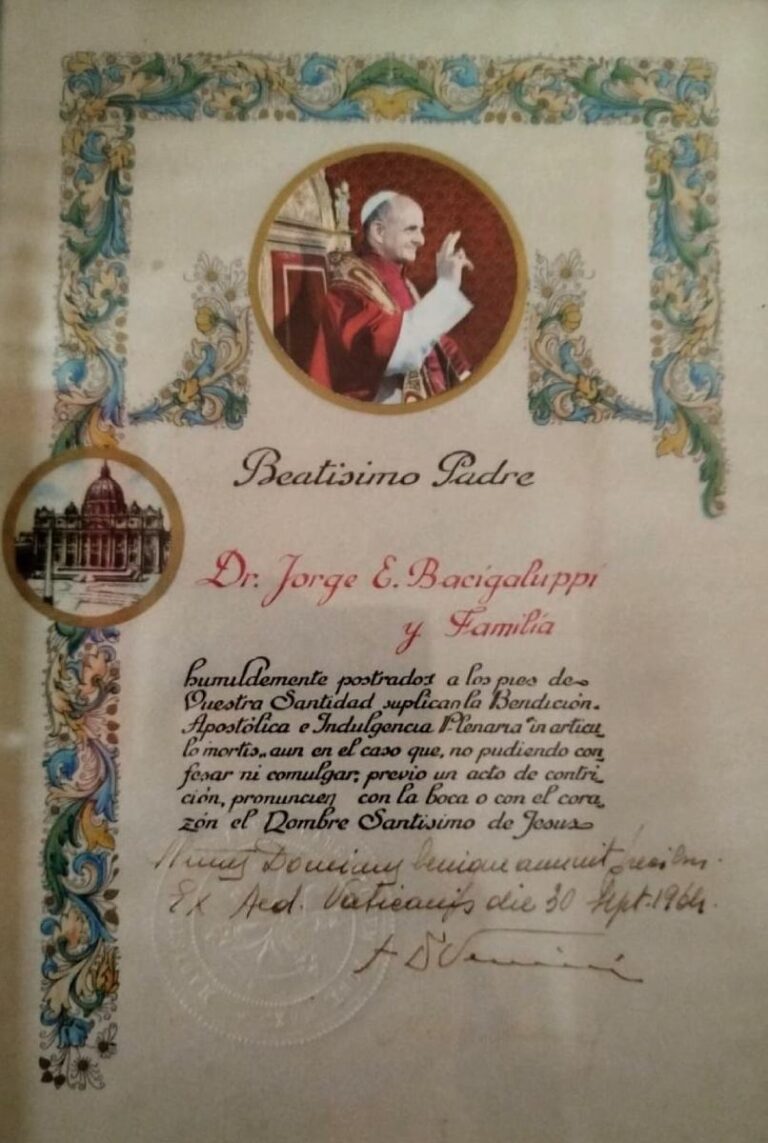 Beatisimo Padre
Dr. Jorge E. Bacigaluppi
y Familia
humildemente postrados a los pies de
Vuestra Santidad suplican la Bendición
Apostólica e Indulgencia Plenaria "in articu
lo mortis" aun en el caso que, no pudiendo con
fesar ni comulgar; previo un acto de contri
ción, pronuncien con la boca o con el cora
zón el Nombre Santisimo de Jesus
benigne annuit precibus.
Ex Aed. Vaticanis die 30 Sept.